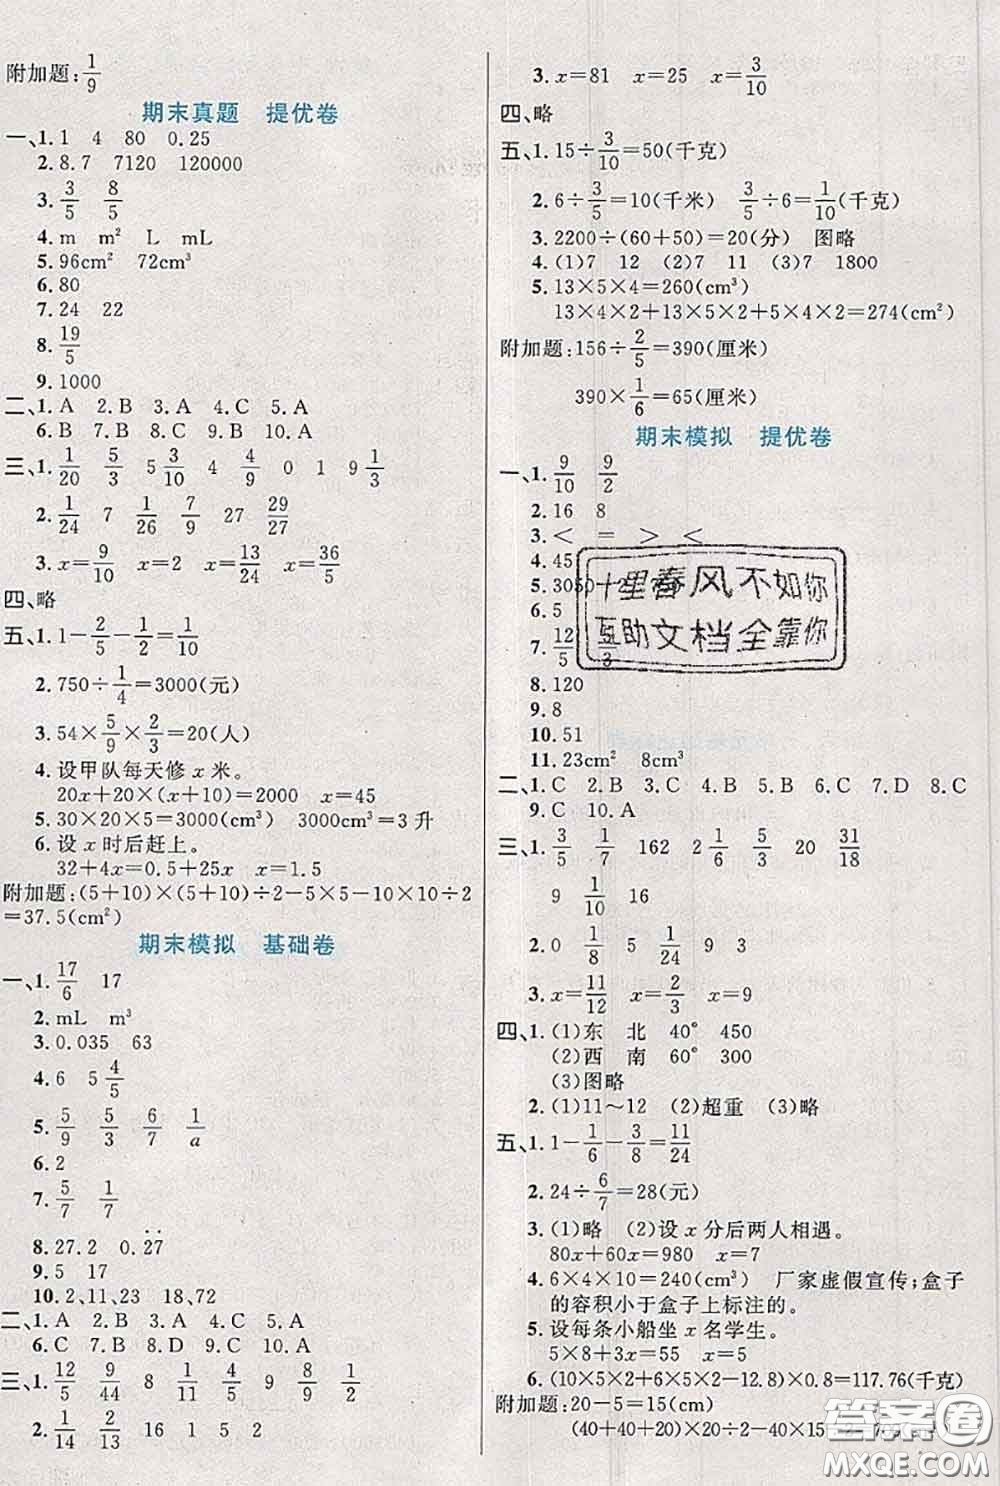 附加题:1/9
期末真题 提优卷
一、1.1 4 80 0.25
2.8.7 7120 120000
3.3/5 8/5
4.m m² L mL
5.96cm² 72cm³
6.80
7.24 22
8.19/5
9.1000
二、1.A 2.B 3.A 4.C 5.A
6.B 7.B 8.C 9.B 10.A
三、1.1/20 5/3 5 3/10 4 4/9 0 1 9 1/3
2.1/24 7 1/26 7/9 27 29/27
3.x=9/10 x=2 x=13/24 x=36/35
四、略
五、1.1-2/5-1/2=1/10
2.750÷1/4=3000(元)
3.54×5/9×2/3=20(人)
4.设甲队每天修 x 米。
20x+20×(x+10)=2000 x=45
5.30×20×5=3000(cm³) 3000cm³=3 升
6.设 x 时后赶上。
32+4x=0.5+25x x=1.5
附加题:(5+10)×(5+10)÷2-5×5-10×10÷2
=37.5(cm²)
期末模拟 基础卷
一、1.17/6 17
2.mL m³
3.0.035 63
4.6 5 4/5
5.5/9 5/3 6/7 1/a
6.2
7.5/7 1/7
8.27.2 0.2̇7̇
9.5 17
10.2,11,23 18,72
二、1.A 2.B 3.A 4.C 5.B
6.C 7.B 8.C 9.B 10.A
三、1.12/5 9/44 8 1/11 4/5 9 8/9 1/2
2.1/14 2/13 16 1 5
3.x=81 x=25 x=3/10
四、略
五、1.15÷3/10=50(千克)
2.6÷3/5=10(千米) 3/5÷6=1/10(千克)
3.2200÷(60+50)=20(分) 图略
4.(1)7 12 (2)7 11 (3)7 1800
5.13×5×4=260(cm³)
13×4×2+13×5×2+5×4×2=274(cm²)
附加题:156÷2/5=390(厘米)
390×1/6=65(厘米)
期末模拟 提优卷
一、1.9/10 9/2
2.16 8
3.< = > <
4.45
5.3050
6.5
7.12/5
8.120
9.8
10.51
11.23cm² 8cm³
二、1.C 2.B 3.C 4.B 5.B 6.C 7.D 8.C
9.C 10.A
三、1.3/5 1/7 162 2 1/6 5/3 20 31/18
9 1/10 16
2.0 1/8 5 1/24 9 3
3.x=11/12 x=4/21 x=9
四、1.(1)东 北 40° 450
(2)西 南 60° 300
(3)图略
2.(1)11~12 (2)超重 (3)略
五、1.1-1/6-3/8=11/24
2.24÷6/7=28(元)
3.(1)略 (2)设 x 分后两人相遇。
80x+60x=980 x=7
4.6×4×10=240(cm³) 厂家虚假宣传;盒子
的容积小于盒子上标注的。
5.设每条小船坐 x 名学生。
5×8+3x=55 x=5
6.(10×5×2+6×5×2-12.8)×0.8=117.76(千克)
附加题:20-5=15(cm)
(40+40+20)×20÷2-40×15
十里春风不如你
互助文档全靠你
答案圈
MXQE.COM